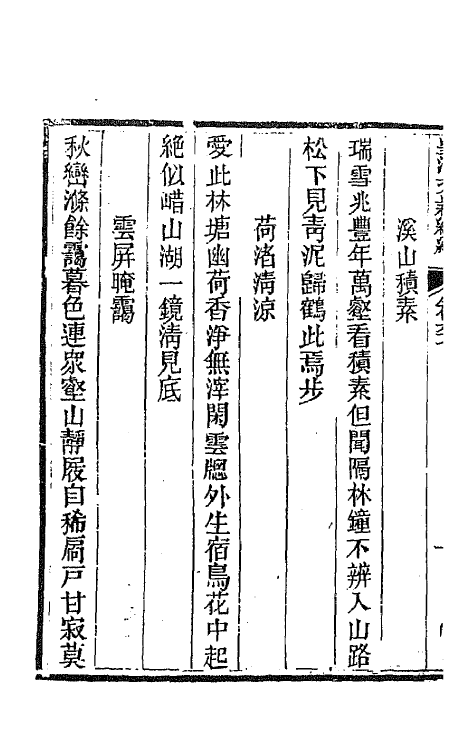 溪山積素
瑞雪兆豐年萬壑看積素但聞隔林鐘不辨入山路
松下見靑泥歸鶴此焉步
荷渚淸涼
愛此林塘幽荷香淨無滓閑雲牕外生宿鳥花中起
絶似皓山湖一鏡淸見底
雲屏晻靄
秋巒滌餘靄暮色連衆壑山靜屐自稀扃戸甘寂莫